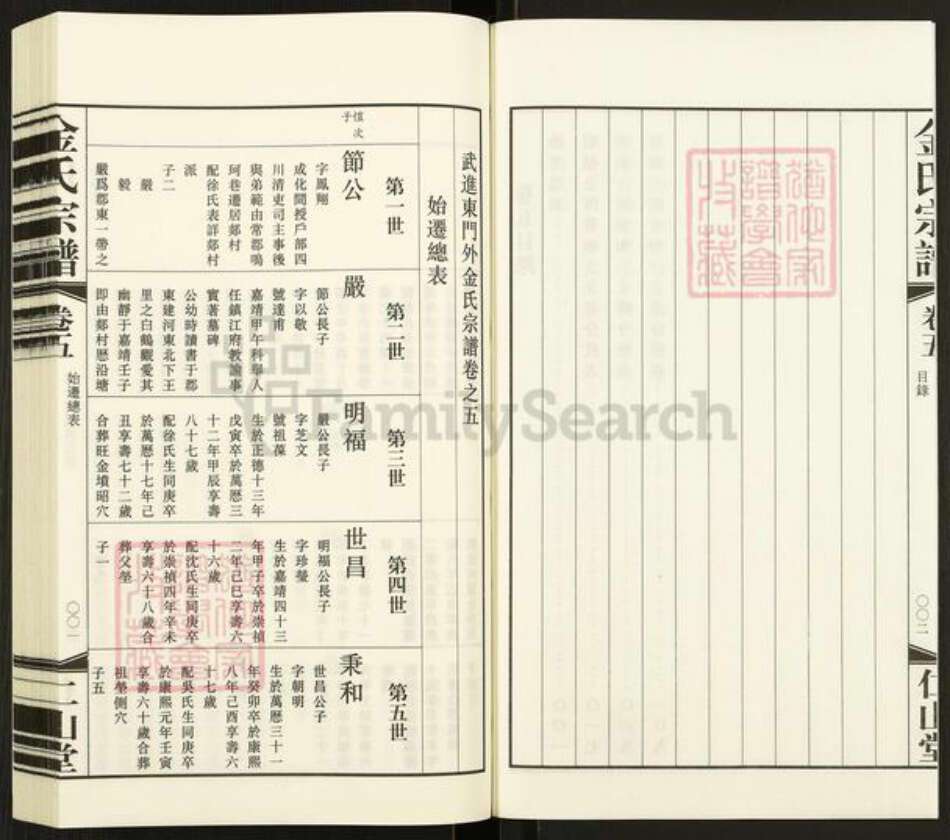 金氏宗譜
卷五
目錄
〇〇二
仁山堂
武進東門外金氏宗譜卷之五
始遷總表
第一世
第二世
第三世
第四世
第五世
愃次
子
節公
字鳳翔
成化間授戶部四
川清吏司主事後
與弟範由常郡鳴
珂巷遷居郯村
配徐氏表詳郯村
派
子二
嚴
毅
嚴爲郡東一帶之
嚴
節公長子
字以敬
號達甫
嘉靖甲午科舉人
任鎮江府教諭事
實著墓碑
公幼時讀書于郡
東建河東北下王
里之白鶴觀愛其
幽靜于嘉靖壬子
即由郯村歷沿塘
明福
嚴公長子
字芝文
號祖葆
生於正德十三年
戊寅卒於萬歷三
十二年甲辰享壽
八十七歲
配徐氏生同庚卒
於萬歷十七年己
丑享壽七十二歲
合葬旺金墳昭穴
世昌
明福公長子
字珍瑩
生於嘉靖四十三
年甲子卒於崇禎
二年己巳享壽六
十六歲
配沈氏生同庚卒
於崇禎四年辛未
享壽六十八歲合
葬父塋
子一
秉和
世昌公子
字朝明
生於萬歷三十一
年癸卯卒於康熙
八年己酉享壽六
十七歲
配吳氏生同庚卒
於康熙元年壬寅
享壽六十歲合葬
祖塋側穴
子五
金氏宗譜
卷五
始遷總表
〇〇一
仁山堂
FamilySearch